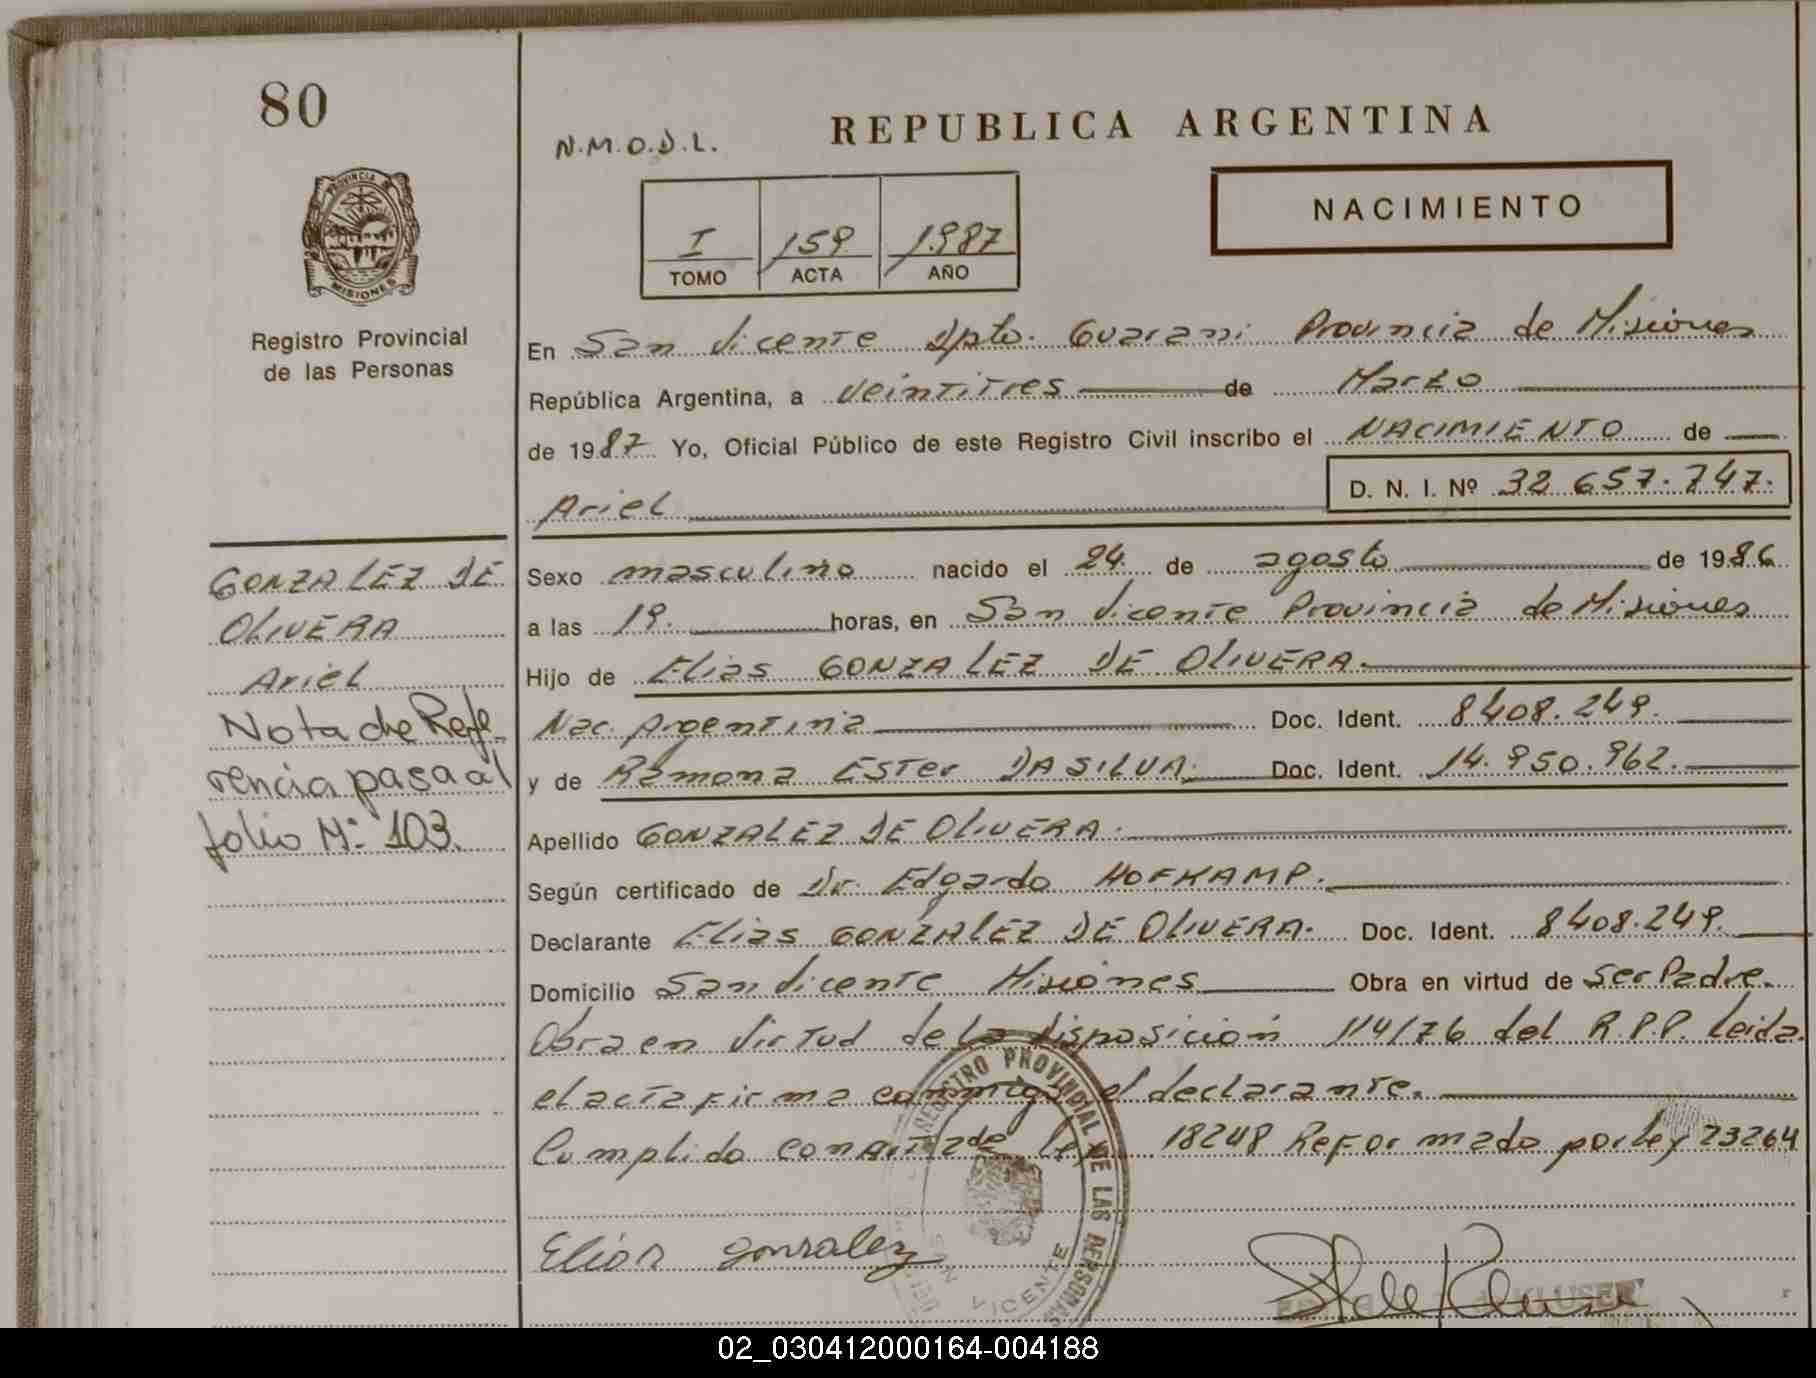 80
N.M.O.D.L.
REPUBLICA ARGENTINA
PROVINCIA DE
MISIONES
Registro Provincial
de las Personas
I
159
1987
TOMO
ACTA
AÑO
NACIMIENTO
En San Vicente Dpto. Guarani Provincia de Misiones
República Argentina, a veintitres de Marzo
de 1987 Yo, Oficial Público de este Registro Civil inscribo el NACIMIENTO de
Ariel
D. N. I. Nº 32 657.747.
GONZALEZ DE
OLIVERA
Ariel
Nota de Refe-
rencia pasa al
folio Nº 103.
Sexo masculino nacido el 24 de agosto de 1986
a las 19. horas, en San Vicente Provincia de Misiones
Hijo de Elias GONZALEZ DE OLIVERA.
Nac. Argentina Doc. Ident. 8408.249.
y de Ramona Ester DA SILVA. Doc. Ident. 14.950.962.
Apellido GONZALEZ DE OLIVERA.
Según certificado de Dr. Edgardo HOFKAMP.
Declarante Elias GONZALEZ DE OLIVERA. Doc. Ident. 8408.249.
Domicilio San Vicente Misiones Obra en virtud de ser Padre.
Obra en virtud de la disposición 114/76 del R.P.P. Leida
el acta firma conmigo el declarante.
Cumplido con Art 2 de ley 18248 Reformado por ley 23264
REGISTRO PROVINCIAL DE LAS PERSONAS
SAN VICENTE
Elias Gonzalez
02_030412000164-004188